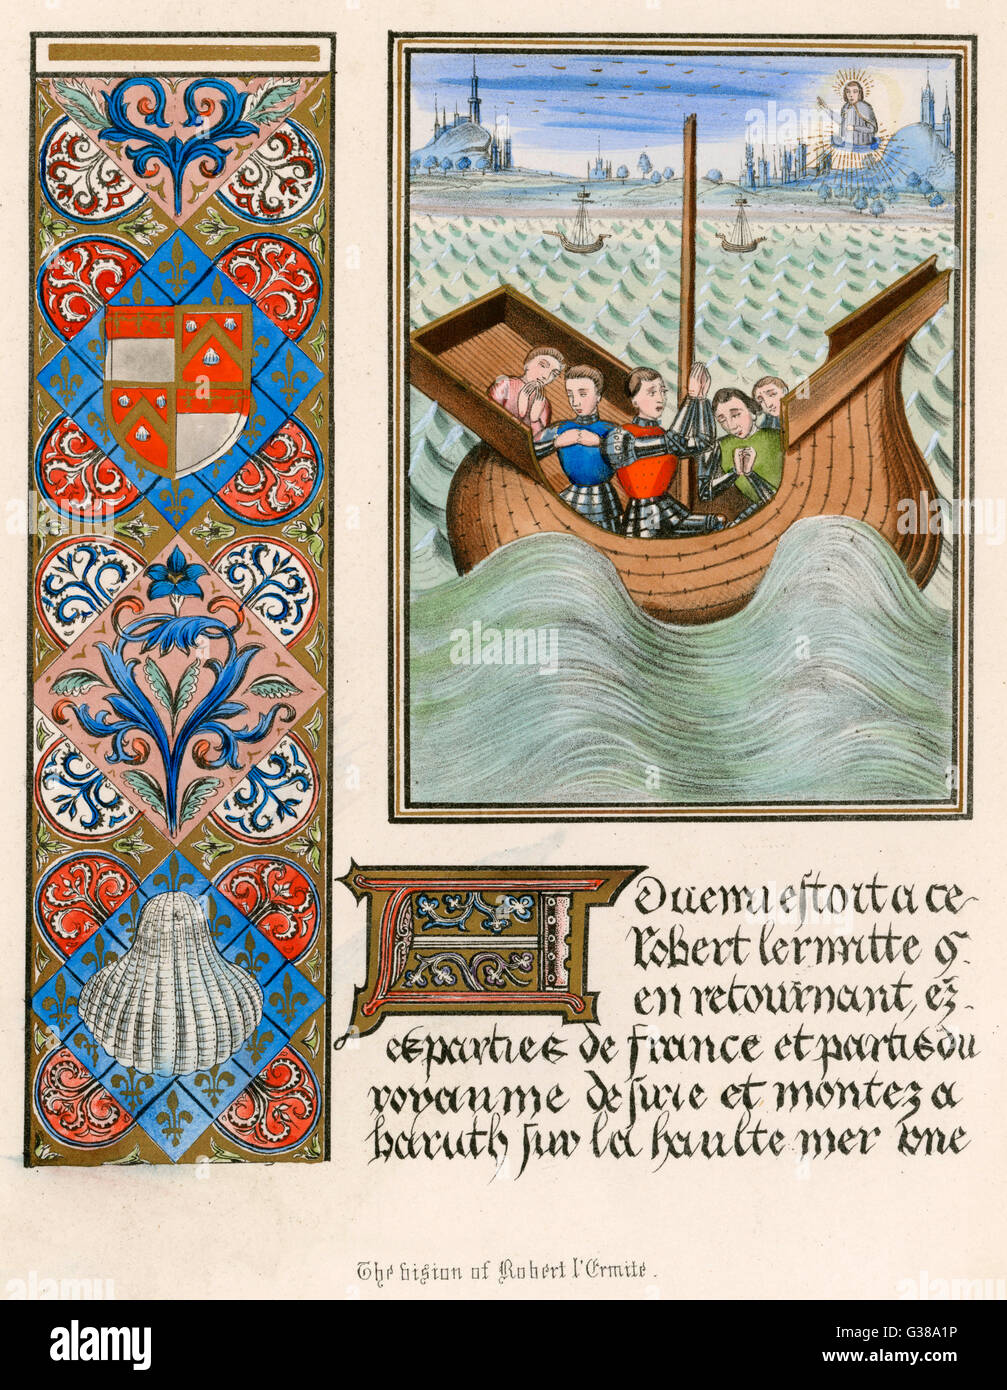 Duemu estoit a ce
Robert lermitte q.
en retournant, ez.
es parties de france et partis du
royaume de sirie et montez a
baruth sur la haulte mer une
The vision of Robert l'Ermite.
alamy
G38A1P
www.alamy.com